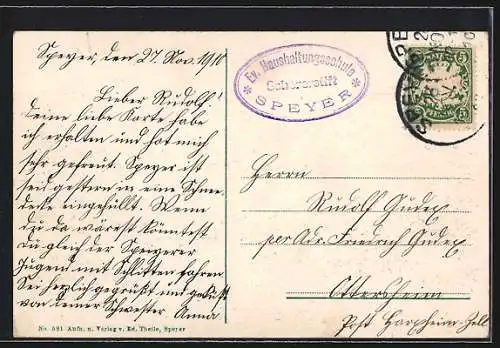 Speyer, den 27. Nov. 1910
Lieber Rudolf!
Deine liebe Karte habe
ich erhalten und hat mich
sehr gefreut. Speyer ist
seit gestern in eine Schnee-
decke eingehüllt. Wenn
du da wärest könntest
du gleich der Speyerer
Jugend mit Schlitten fahren
Sei herzlich gegrüßt und geküßt
von deiner Schwester Anna
Ev. Haushaltungsschule
SPEYER
SPEYER
5
5
Herrn
Rudolf Gudex
per Adr. Friedrich Gudex
Ottersheim
Post Harxheim-Zell
No. 581 Aufn. u. Verlag v. Ed. Theile, Speyer